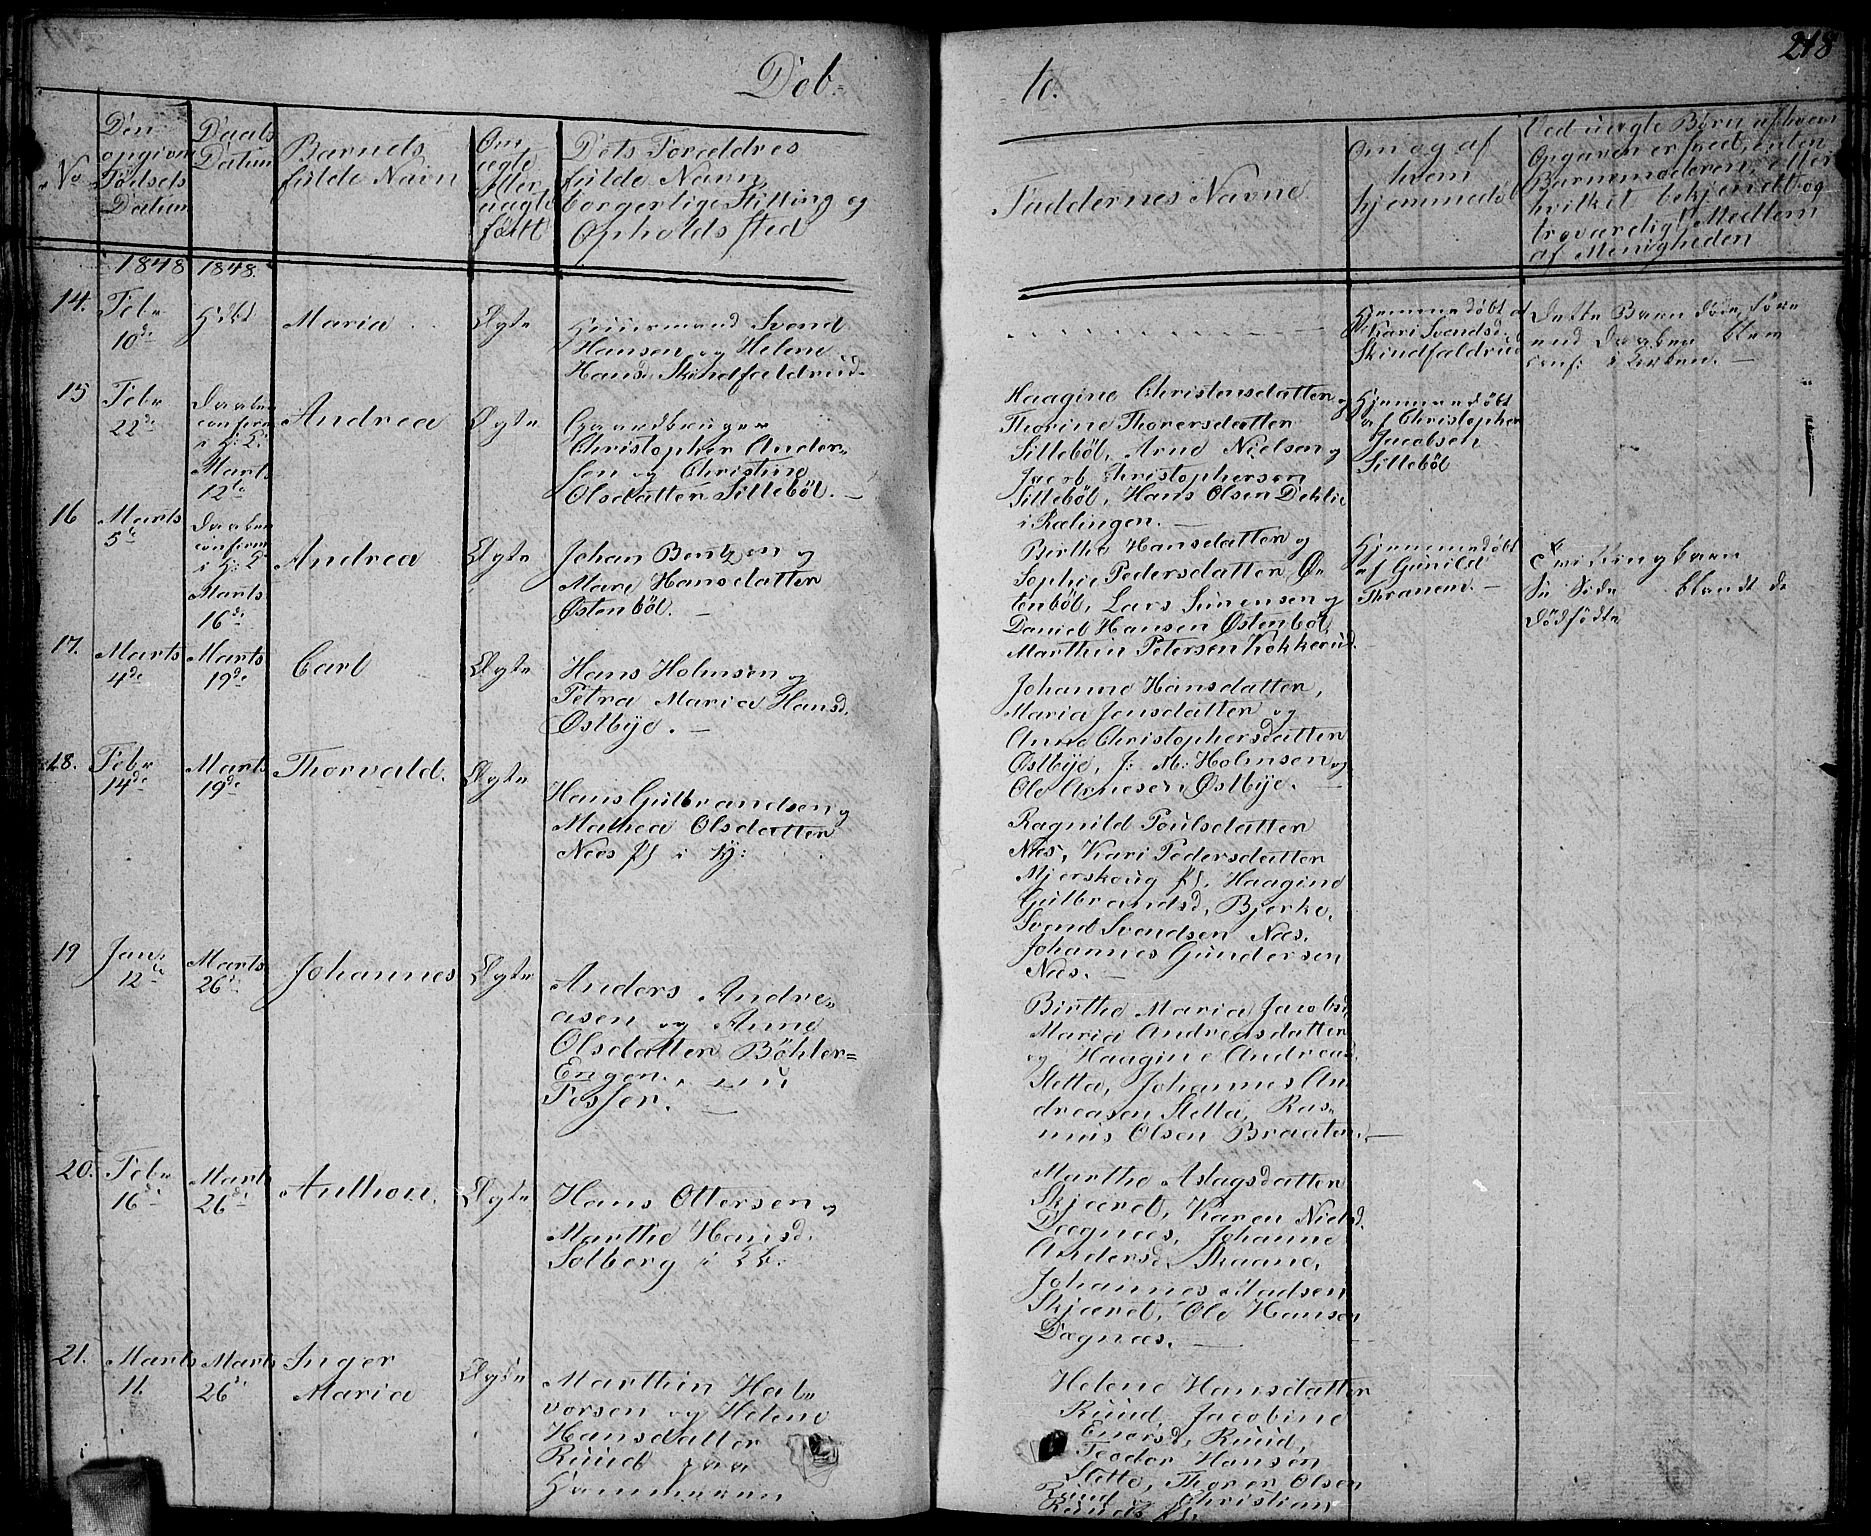 Døb-
te.
218
No
Den
opgivne
Fødsels
Datum
Daabs
Datum
Barnets
fulde Navn
Om
ægte
eller
uægte
født
Dets Forældres
fulde Navn,
borgerlige Stilling og
Opholdssted
Faddernes Navne
Om og af
hvem
hjemmedøbt
Ved uægte Børn, af hvem
Opgaven er skeed, enten
Barnemoderen, eller
hvilket bekjendt og
troværdig Medlem
af Menigheden
1848 1848.
14.
Febr
10de
Maria
Ægte
Huusmand Svend
Hansen og Helene
Hansd. Skindfældrud.
Hjemmedøbt af
Kari Svendsd.
Skindfældrud
Dette Barn døde, før
end Daaben blev
conf: i Kirken. —
15
Febr
22de
Daaben
confirm.
i H: K:
Marts
12te
Andrea
Ægte
Gaardbruger
Christopher Ander-
sen og Christine
Olsdatter Sillebøl. —
Haagine Christensdatter og
Thorine Thorersdatter
Sillebøl, Arne Nielsen og
Jacob Christophersen
Sillebøl, Hans Olsen Dehlie
i Rælingen. —
Hjemmedøbt
af Christopher
Jacobsen
Sillebøl
16
Marts
5te
Daaben
confirm.
i H: K:
Marts
16de
Andrea
Ægte
Johan Bentzen og
Mare Hansdatter
Østenbøl. —
Birthe Hansdatter og
Sophie Pedersdatter Ø-
stenbøl, Lars Simensen og
Daniel Hansen Østenbøl,
Marthin Petersen Kokkerud.
Hjemmedøbt
af Gunild
Thranem. —
Tvillingbarn
Se Side blandt de
dødfødte
17.
Marts
4de
Marts
19de
Carl
Ægte
Hans Holmsen og
Petra Maria Hansd.
Østbye. —
Johanne Hansdatter,
Maria Jensdatter og
Anne Christophersdatter
Østbye, J: M: Holmsen og
Ole Arnesen Østbye. —
18.
Febr
14de
Marts
19de
Thorvald.
Ægte
Hans Gulbrandsen og
Mathea Olsdatter
Næs
Ragnild Poulsdatter
Næs, Kari Pedersdatter
Mjerskoug Haagine
Gulbrandsd. Bjerke,
Svend Svendsen Næs,
Johannes Gundersen
Næs. —
19
Jan.
12te
Marts
26de
Johannes
Ægte
Anders Andre-
asen og Anne
Olsdatter Bøhler-
Engen
Fosser. —
Birthe Maria Jacobsd.
Maria Andreasdatter
og Haagine Andreasd.
Sletta, Johannes An-
dreasen Sletta, Ras-
mus Olsen Braaten. —
20.
Febr
16de
Marts
26de
Anthon.
Ægte
Hans Ottersen og
Marthe Hansd.
Solberg
Marthe Aslagsdatter
Skjæret, Karen Nielsd.
Dægnæs, Johanne
Andersd. Skaane,
Johannes Madsen
Skjæret, Ole Hansen
Dægnæs. —
21.
Marts
11.
Marts
26de
Inger
Maria
Ægte
Marthin Hal-
vorsen og Helene
Hansdatter
Ruud paa
Hammeren
Helene Hansdatter
Ruud, Jacobine
Enersd. Ruud,
Teodor Hansen
Slette, Thorer Olsen
Ruud, Christian
Ruud